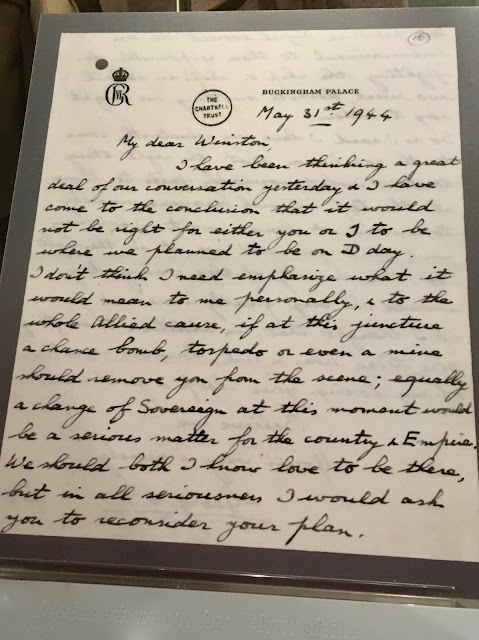 BUCKINGHAM PALACE
THE
CHARTWELL
TRUST
May 31st 1944
My dear Winston,
I have been thinking a great
deal of our conversation yesterday & I have
come to the conclusion that it would
not be right for either you or I to be
where we planned to be on D day.
I don't think I need emphasize what it
would mean to me personally, & to the
whole Allied cause, if at this juncture
a chance bomb, torpedo or even a mine
should remove you from the scene; equally
a change of Sovereign at this moment would
be a serious matter for the country & Empire.
We should both I know love to be there,
but in all seriousness I would ask
you to reconsider your plan.